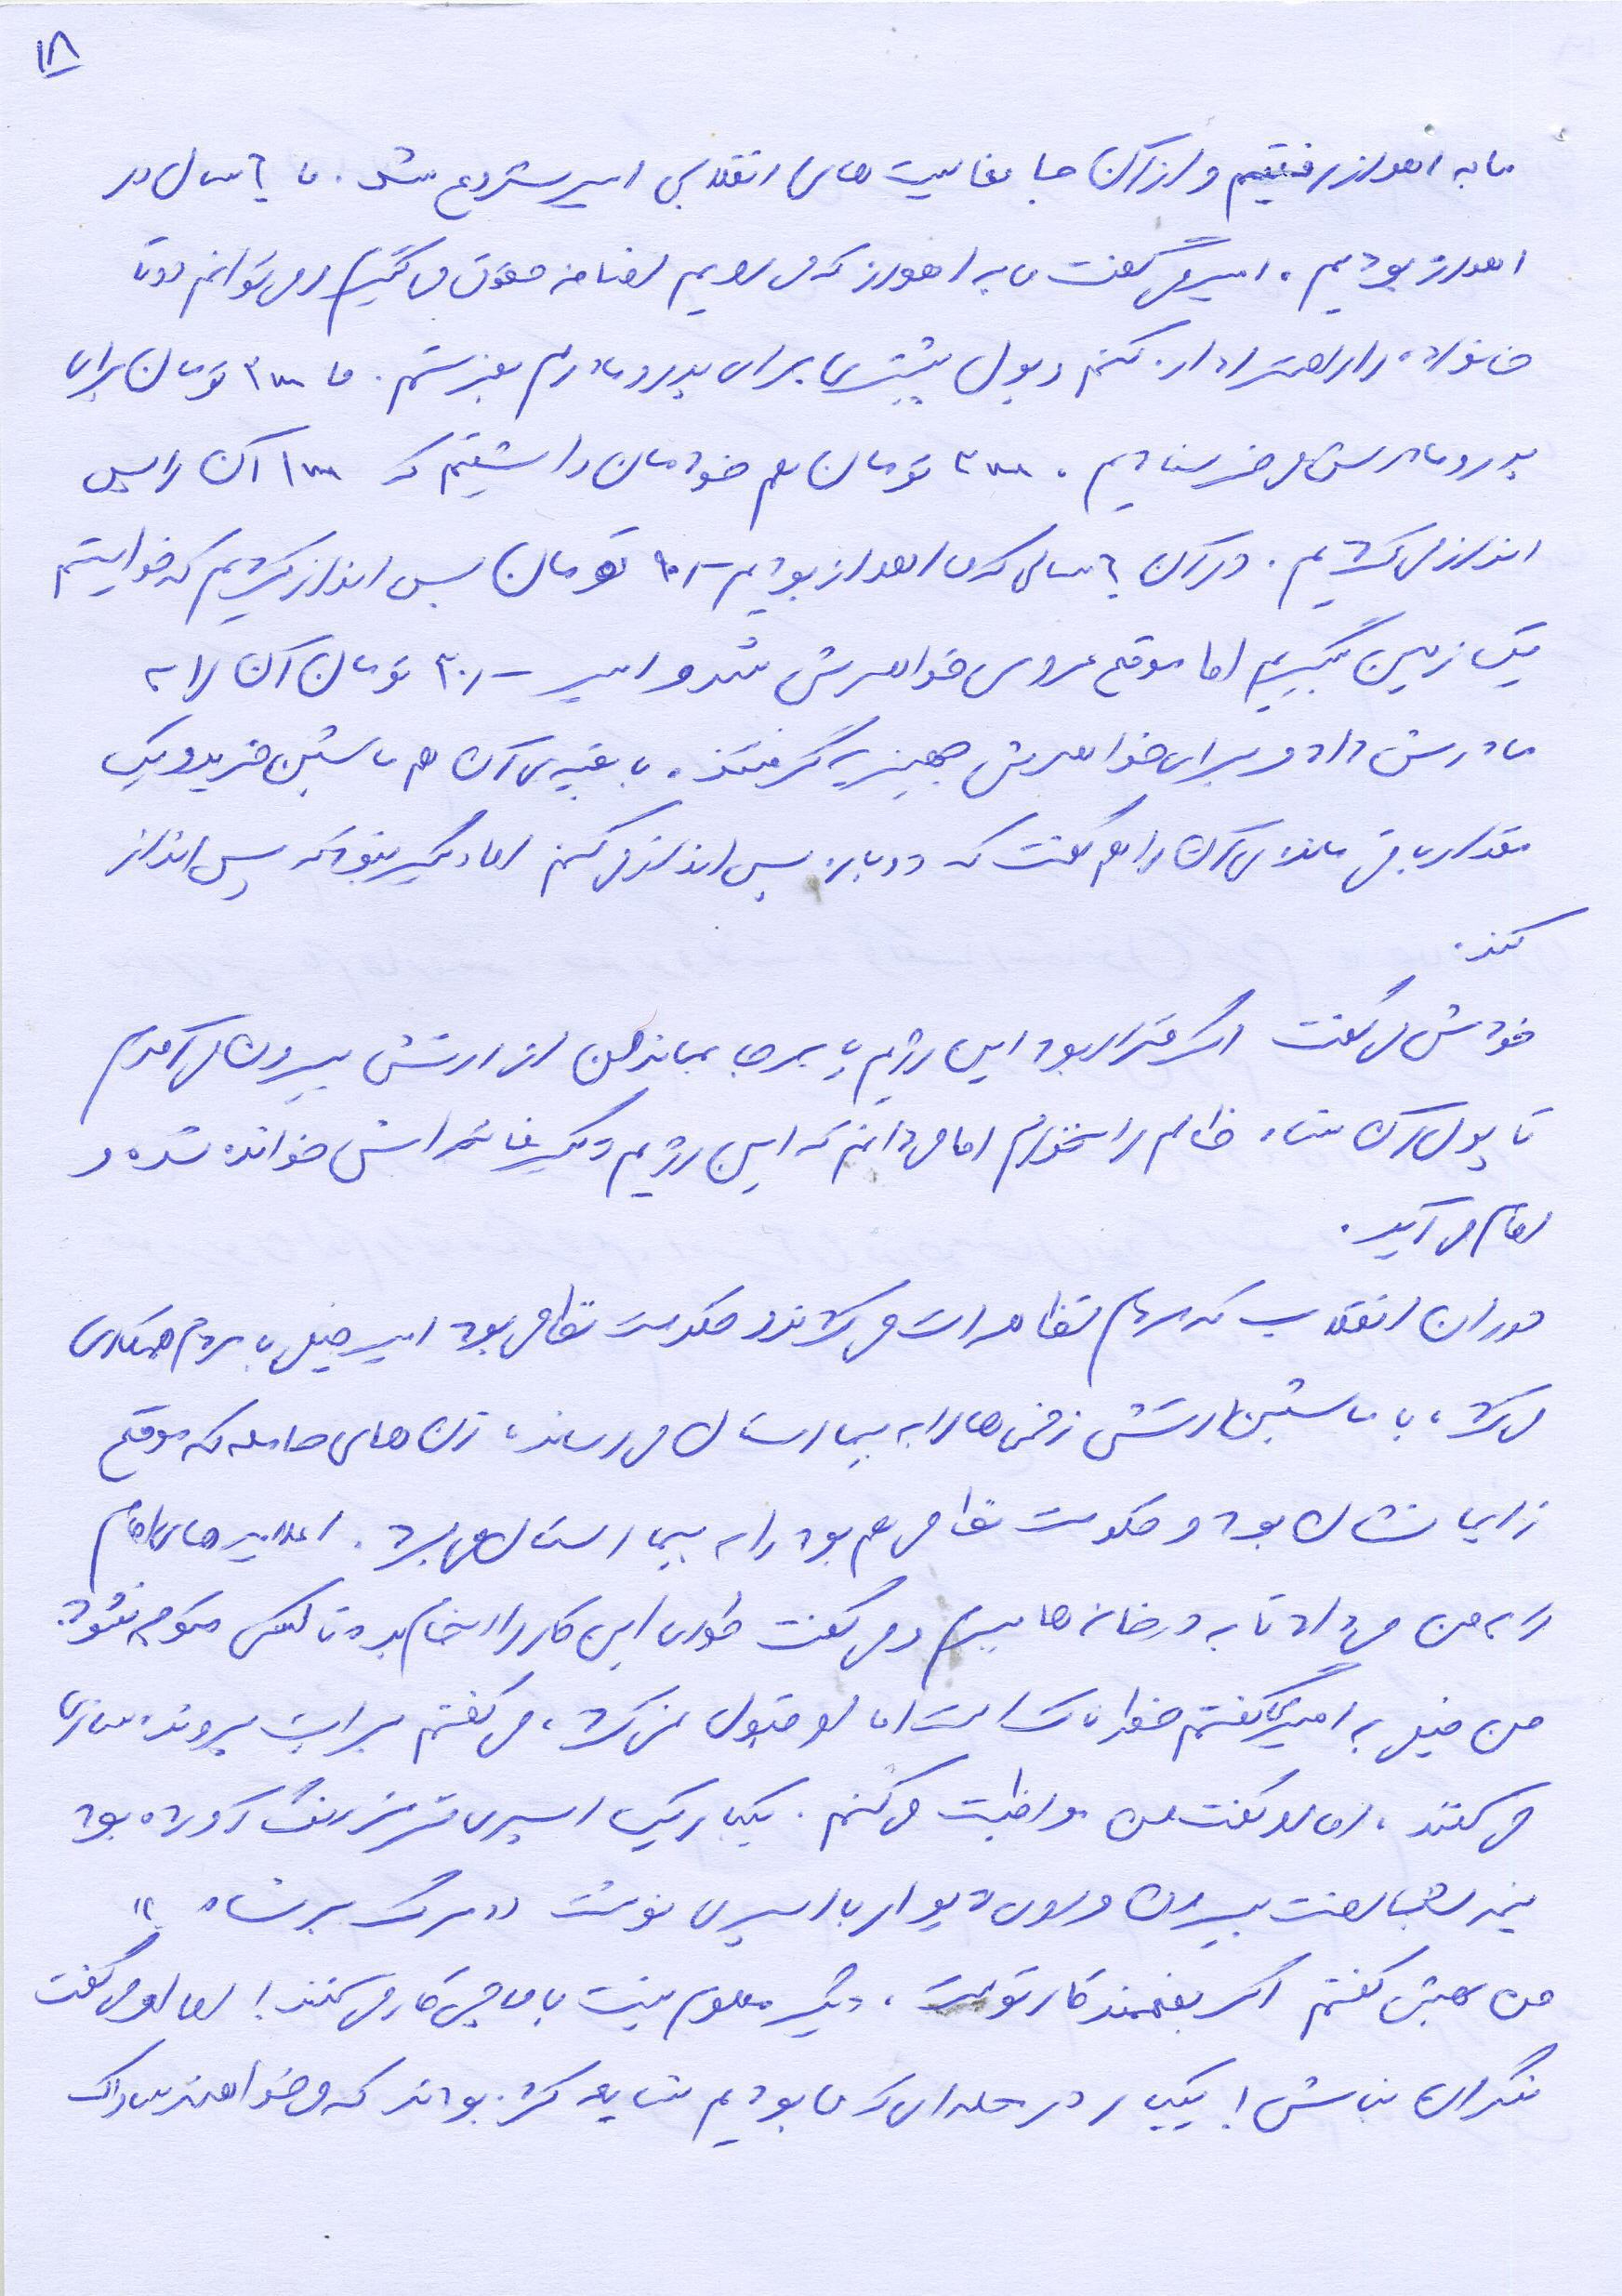 ۱۸
ما به اهواز رفتیم و از آن جا فعالیت های انقلابی امیر شروع شد. ما ۶ سال در
اهواز بودیم. امیر می گفت ما به اهواز که می رویم اضافه حقوق می گیریم و می توانم دو تا
خانواده را راحت تر اداره کنم و پول بیشتری برای پدر و مادرم بفرستم. ما ۳۰۰ تومان برای
پدر و مادرش می فرستادیم. ۳۰۰ تومان هم خودمان داشتیم که ۱۰۰ آن را پس
انداز می کردیم. در آن ۶ سالی که ما اهواز بودیم تومان پس انداز کردیم که خواستیم
یک زمین بگیریم اما موقع عروسی خواهرش شد و امیر تومان آن را به
مادرش داد و برای خواهرش جهیزیه گرفتند. با بقیه ی آن هم ماشین خرید و یک
مقدار باقی مانده ی آن را هم گفت که دوباره پس انداز می کنم اما دیگر نبود که پس انداز
کند.
خودش می گفت اگر قرار بود این رژیم پا برجا بماند من از ارتش بیرون می آمدم
تا پول آن شاه ظالم را نخورم اما می دانم که این رژیم دیگر فاتحه اش خوانده شده و
امام می آید.
دوران انقلاب که مردم تظاهرات می کردند و حکومت نظامی بود امیر خیلی با مردم همکاری
می کرد، با ماشین ارتش زخمی ها را به بیمارستان می رساند، زن های حامله که موقع
زایمانشان بود و حکومت نظامی هم بود را به بیمارستان می برد. اعلامیه های امام
را به من می داد تا به در خانه ها ببرم و می گفت طوری این کار را انجام بده تا کسی متوجه نشود.
من خیلی به امیر می گفتم خطرناک است اما او قبول نمی کرد، می گفتم برایت پرونده سازی
می کنند، اما او گفت من مواظبت می کنم. یکبار یک اسپری قرمز رنگ آورده بود
نیمه شب رفت بیرون و روی دیوار با اسپری نوشت «مرگ بر شاه»
من بهش گفتم اگر بفهمند کار توست، دیگر معلوم نیست با ما چی کار می کنند! اما او می گفت
نگران نباش! یکبار در محله ای که ما بودیم شایعه کرده بودند که می خواهند ساواک